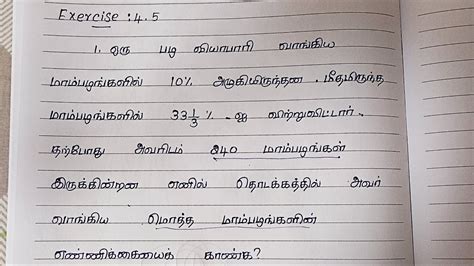 Exercise : 4.5
1. ஒரு பழ வியாபாரி வாங்கிய
மாம்பழங்களில் 10% அழுகியிருந்தன. மீதமிருந்த
மாம்பழங்களில் 33 1/3 % -ஐ விற்றுவிட்டார்.
தற்போது அவரிடம் 240 மாம்பழங்கள்
இருக்கின்றன எனில் தொடக்கத்தில் அவர்
வாங்கிய மொத்த மாம்பழங்களின்
எண்ணிக்கையைக் காண்க?